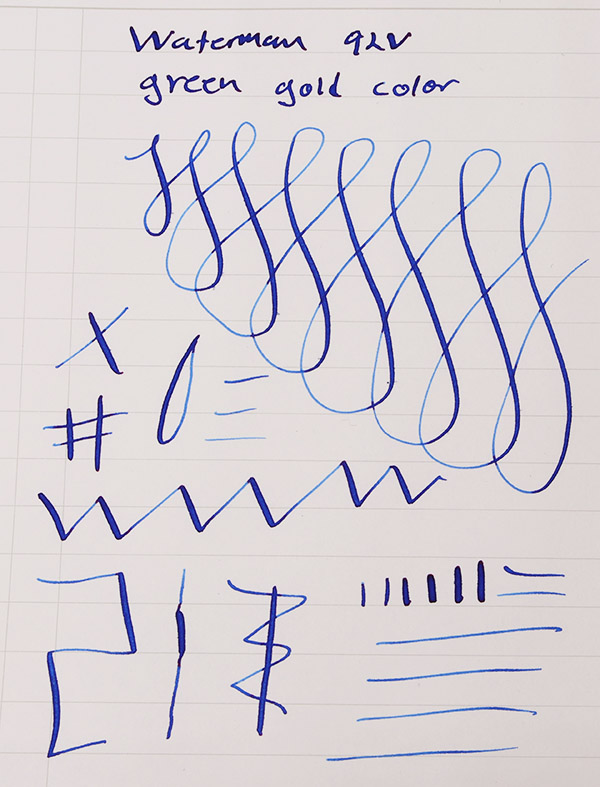 Waterman 92V
green gold color